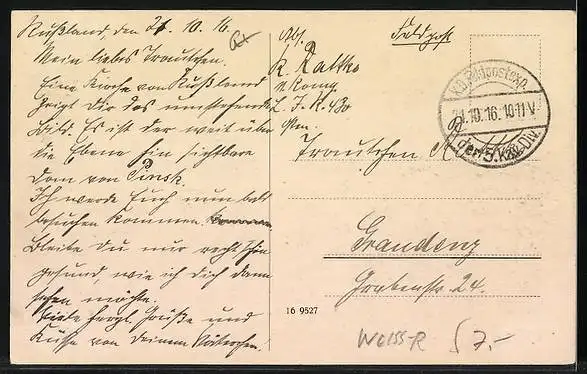 Rußland, den 21.10.16
Mein liebes Trautchen.
Eine Kirche von Rußland
zeigt Dir das umstehende
Bild. Es ist der weit über
die Ebene hin sichtbare
Dom von Pinsk.
Ich werde Euch nun bald
besuchen kommen.
Bleibe Du mir recht schön
gesund, wie ich Dich dann
sehen möchte.
Viele herzl. Grüße und
Küsse von Deinem
Abs.
R. Ratke
L. I. R. 430
Feldpost
K.D. Feldpostexp.
21.10.16.10-11V
der 5. Kav.-Div.
Trautchen R
Graudenz
Grabenstr. 24.
16 9527
W6155-R
7.-